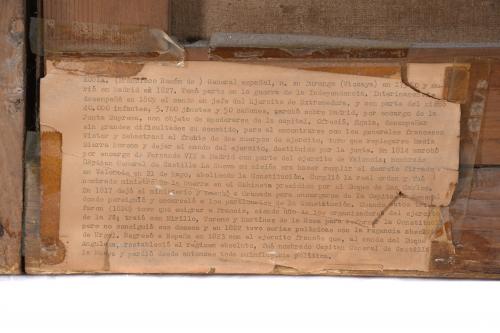 EGUIA, (Francisco Ramón de ) General español, n. en Durango (Vizcaya) en y mu-
rió en Madrid en 1827. Tomó parte en la guerra de la Independencia, Interinamente
desempeñó en 1809 el mando en jefe del Ejercito de Extremadura, y con parte del mismo
40,000 infantes, 5,760 jinetes y 50 cañones, marchó sobre Madrid, por encargo de la
Junta Suprema, con objeto de apoderarse de la capital, Eguía, desempeñar
sin grandes dificultades su cometido, para al encontrarse con los generales franceses
Victor y Sebastiani al frente de dos cuerpos de ejercito, tuvo que replegarse hacia
Sierra Morena y dejar el mando del ejercito, destituido por la Junta. En 1814 marchó
por encargo de Fernando VII a Madrid con parte del ejercito de Valencia; nombrado
Capitan General de Castilla La Nueva el decreto firmado
en Valencia el 4 de Mayo, aboliendo la Constitución. Cumplió la real orden y fué
nombrado ministro de la guerra en el Gabinete presidido por el Duque de San Carlos.
En 1817 dejó el ministerio y marchó a Granada para encargarse de la Capitanía General
donde persiguió y encarceló a los partidarios de la Constitución. Cuando estos triun-
faron (1820) tuvo que emigrar a Francia, siendo uno de los organizadores del ejercito
de la Fé; trató con Murillo, Toreno y Martínez de la Rosa para reformar la Constitución
pero no consiguió sus deseos y en 1822 tuvo serias polémicas con la regencia absolu
de Urgel. Regresó a España en 1823 con el ejercito francés que, al mando del Duque
Angulema restableció el régimen absoluto, fué nombrado Capitan General de Castilla
la Nueva y perdió desde entonces toda su influencia política.